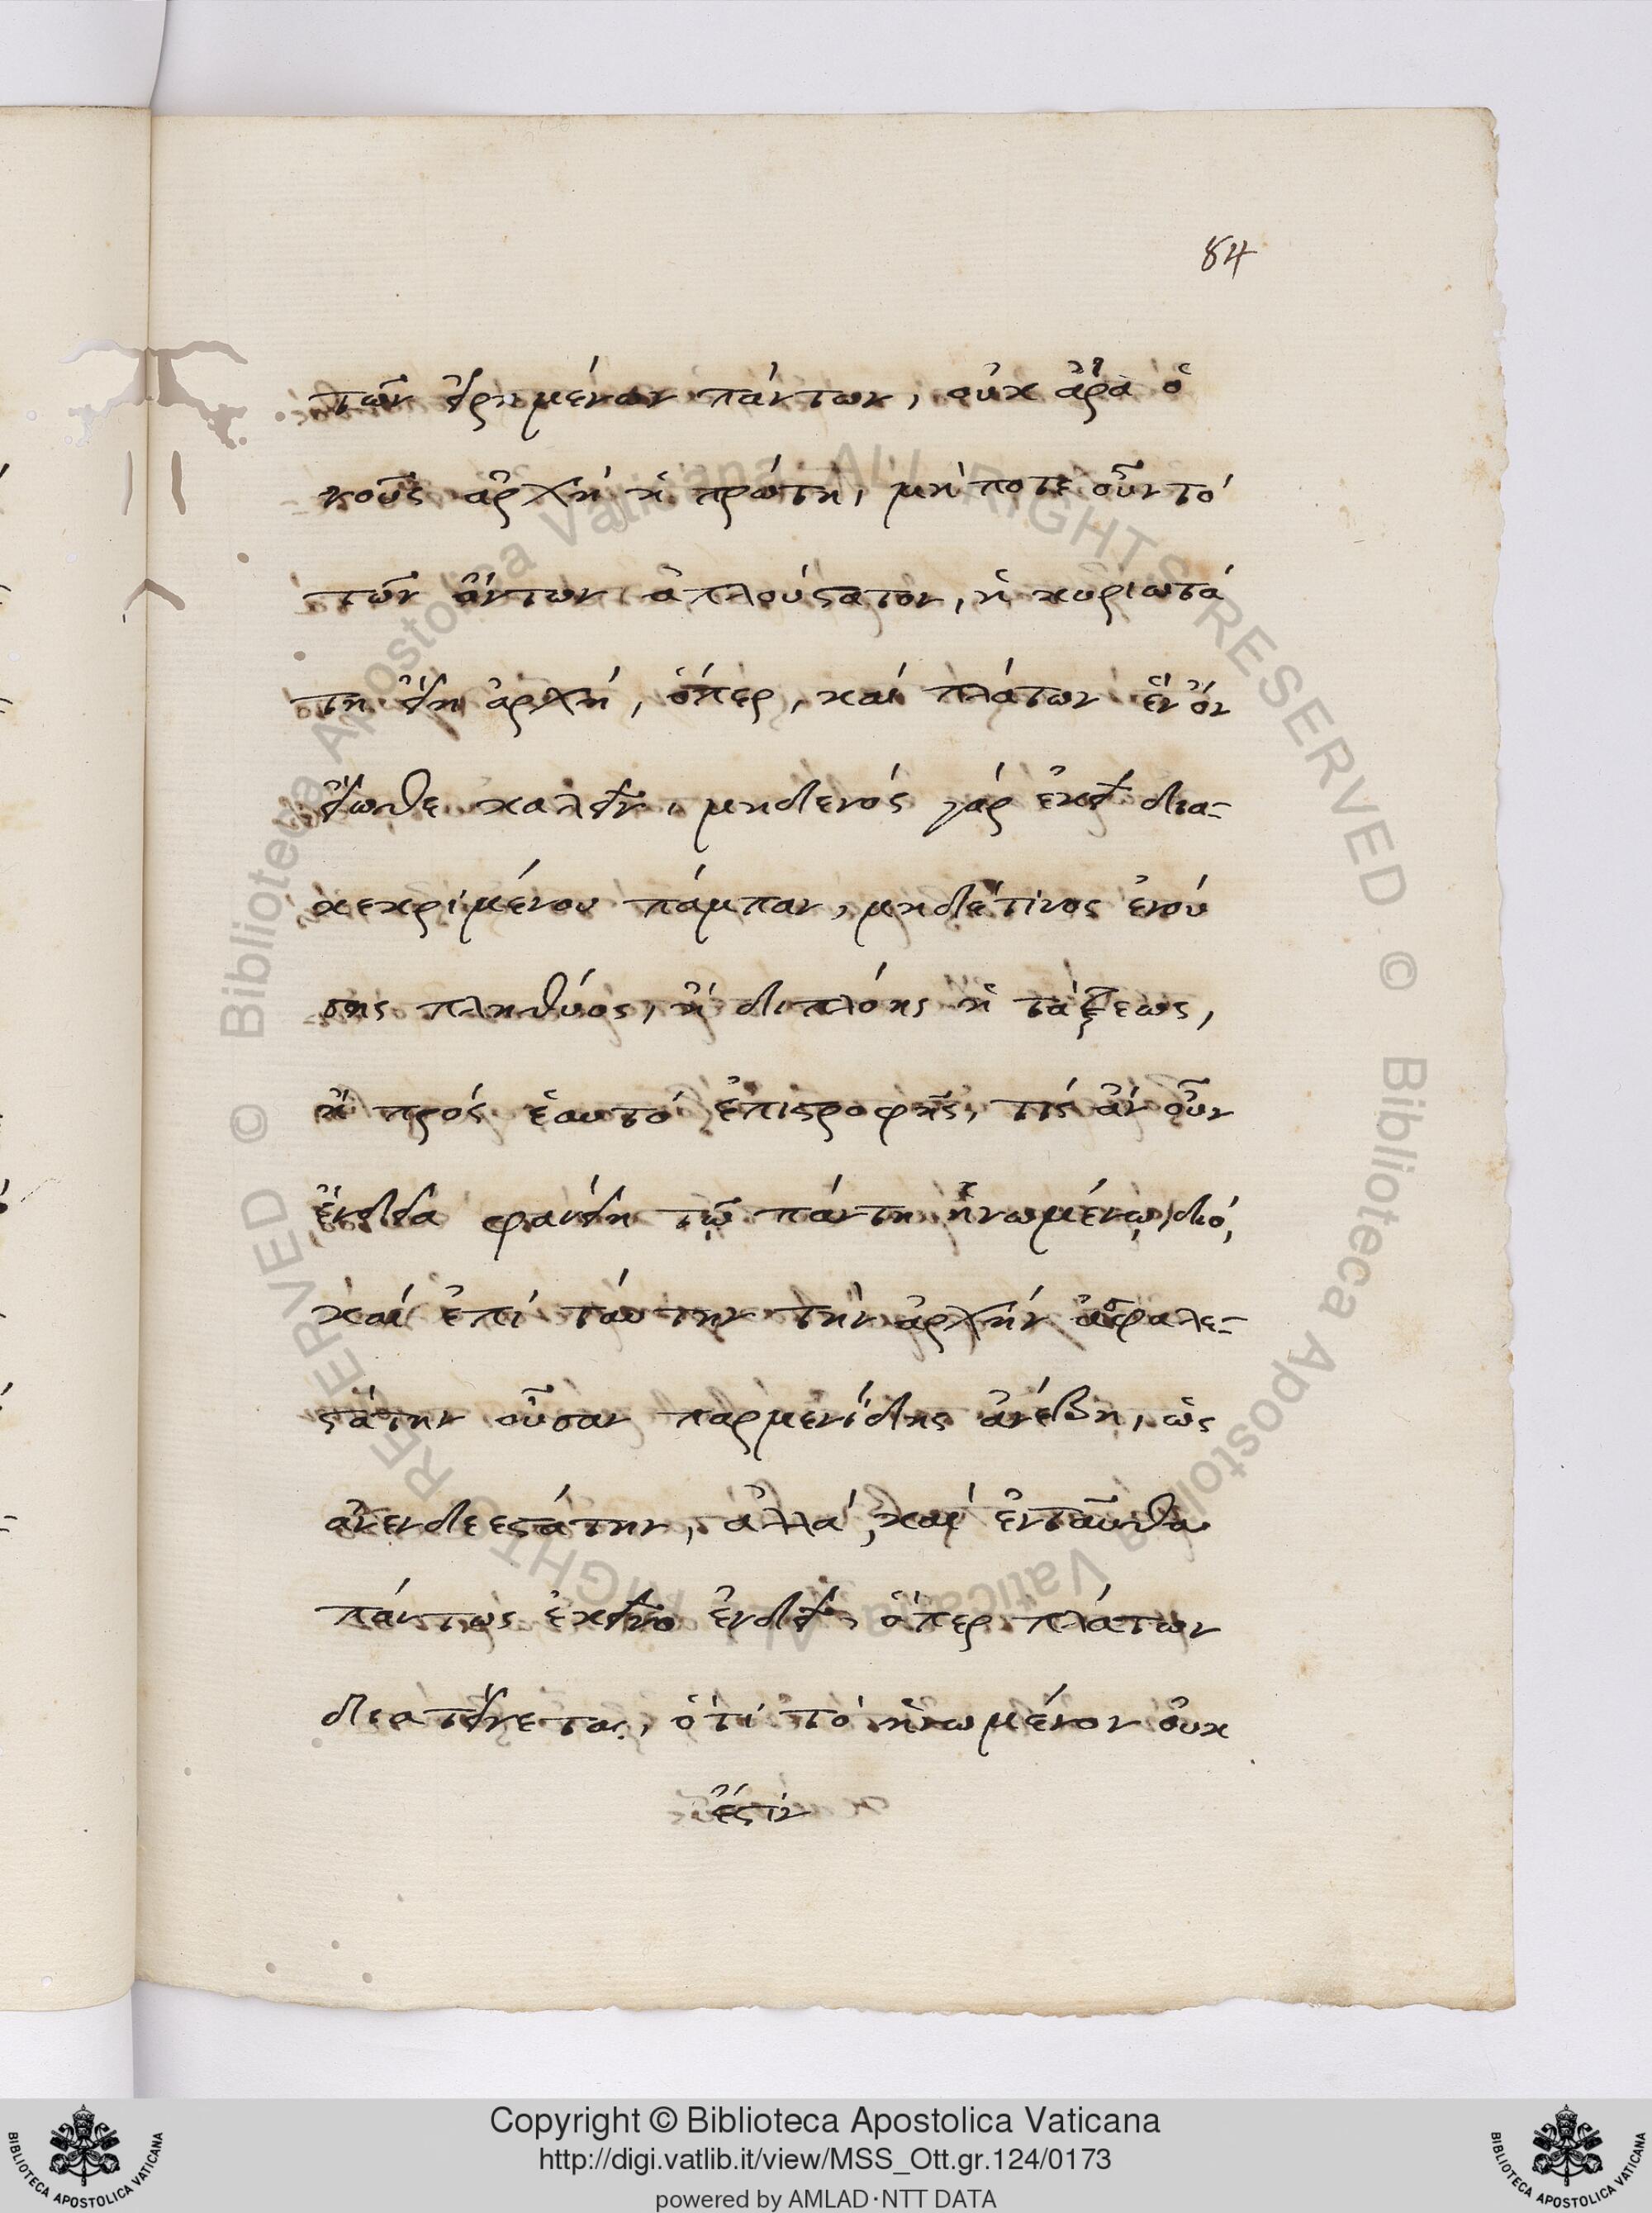 84
τῶν εἰρημένων πάντων, οὐκ ἄρα ὁ
νοῦς ἀρχὴ ἡ πρώτη, μή ποτε οὖν τό
τῶν ὄντων ἁπλούστατον, ἡ κυριωτά
τη εἴη ἀρχή, ὅπερ, καί πλάτων ἓν ὄν
εἴωθε καλεῖν, μηδενός γάρ ἐκεῖ δια-
κεκριμένου πάμπαν, μηδέ τίνος ἐνού
σης πληθύος, ἤ διπλόης ἤ τάξεως,
ἤ πρός ἑαυτό ἐπιστροφῆς, τίς ἄν οὖν
ἔνδεια φανείη τῷ πάντη ἡνωμένῳ, διό,
καί ἐπί ταύτην τὴν ἀρχήν ἀσφαλε-
στάτην οὖσαν παρμενίδης ἀνέβη, ὡς
ἀνενδεεστάτην, ἀλλά, καί ἐνταῦθα
πάντως ἐκεῖνο ἐνδεῖ, ὅπερ πλάτων
διατείνεται, ὅτι τό ἡνωμένον οὐκ
ἔστιν
Copyright © Biblioteca Apostolica Vaticana
http://digi.vatlib.it/view/MSS_Ott.gr.124/0173
powered by AMLAD·NTT DATA
BIBLIOTECA APOSTOLICA VATICANA
BIBLIOTECA APOSTOLICA VATICANA
© Biblioteca Apostolica Vaticana ALL RIGHTS RESERVED © Biblioteca Apostolica Vaticana ALL RIGHTS RESERVED